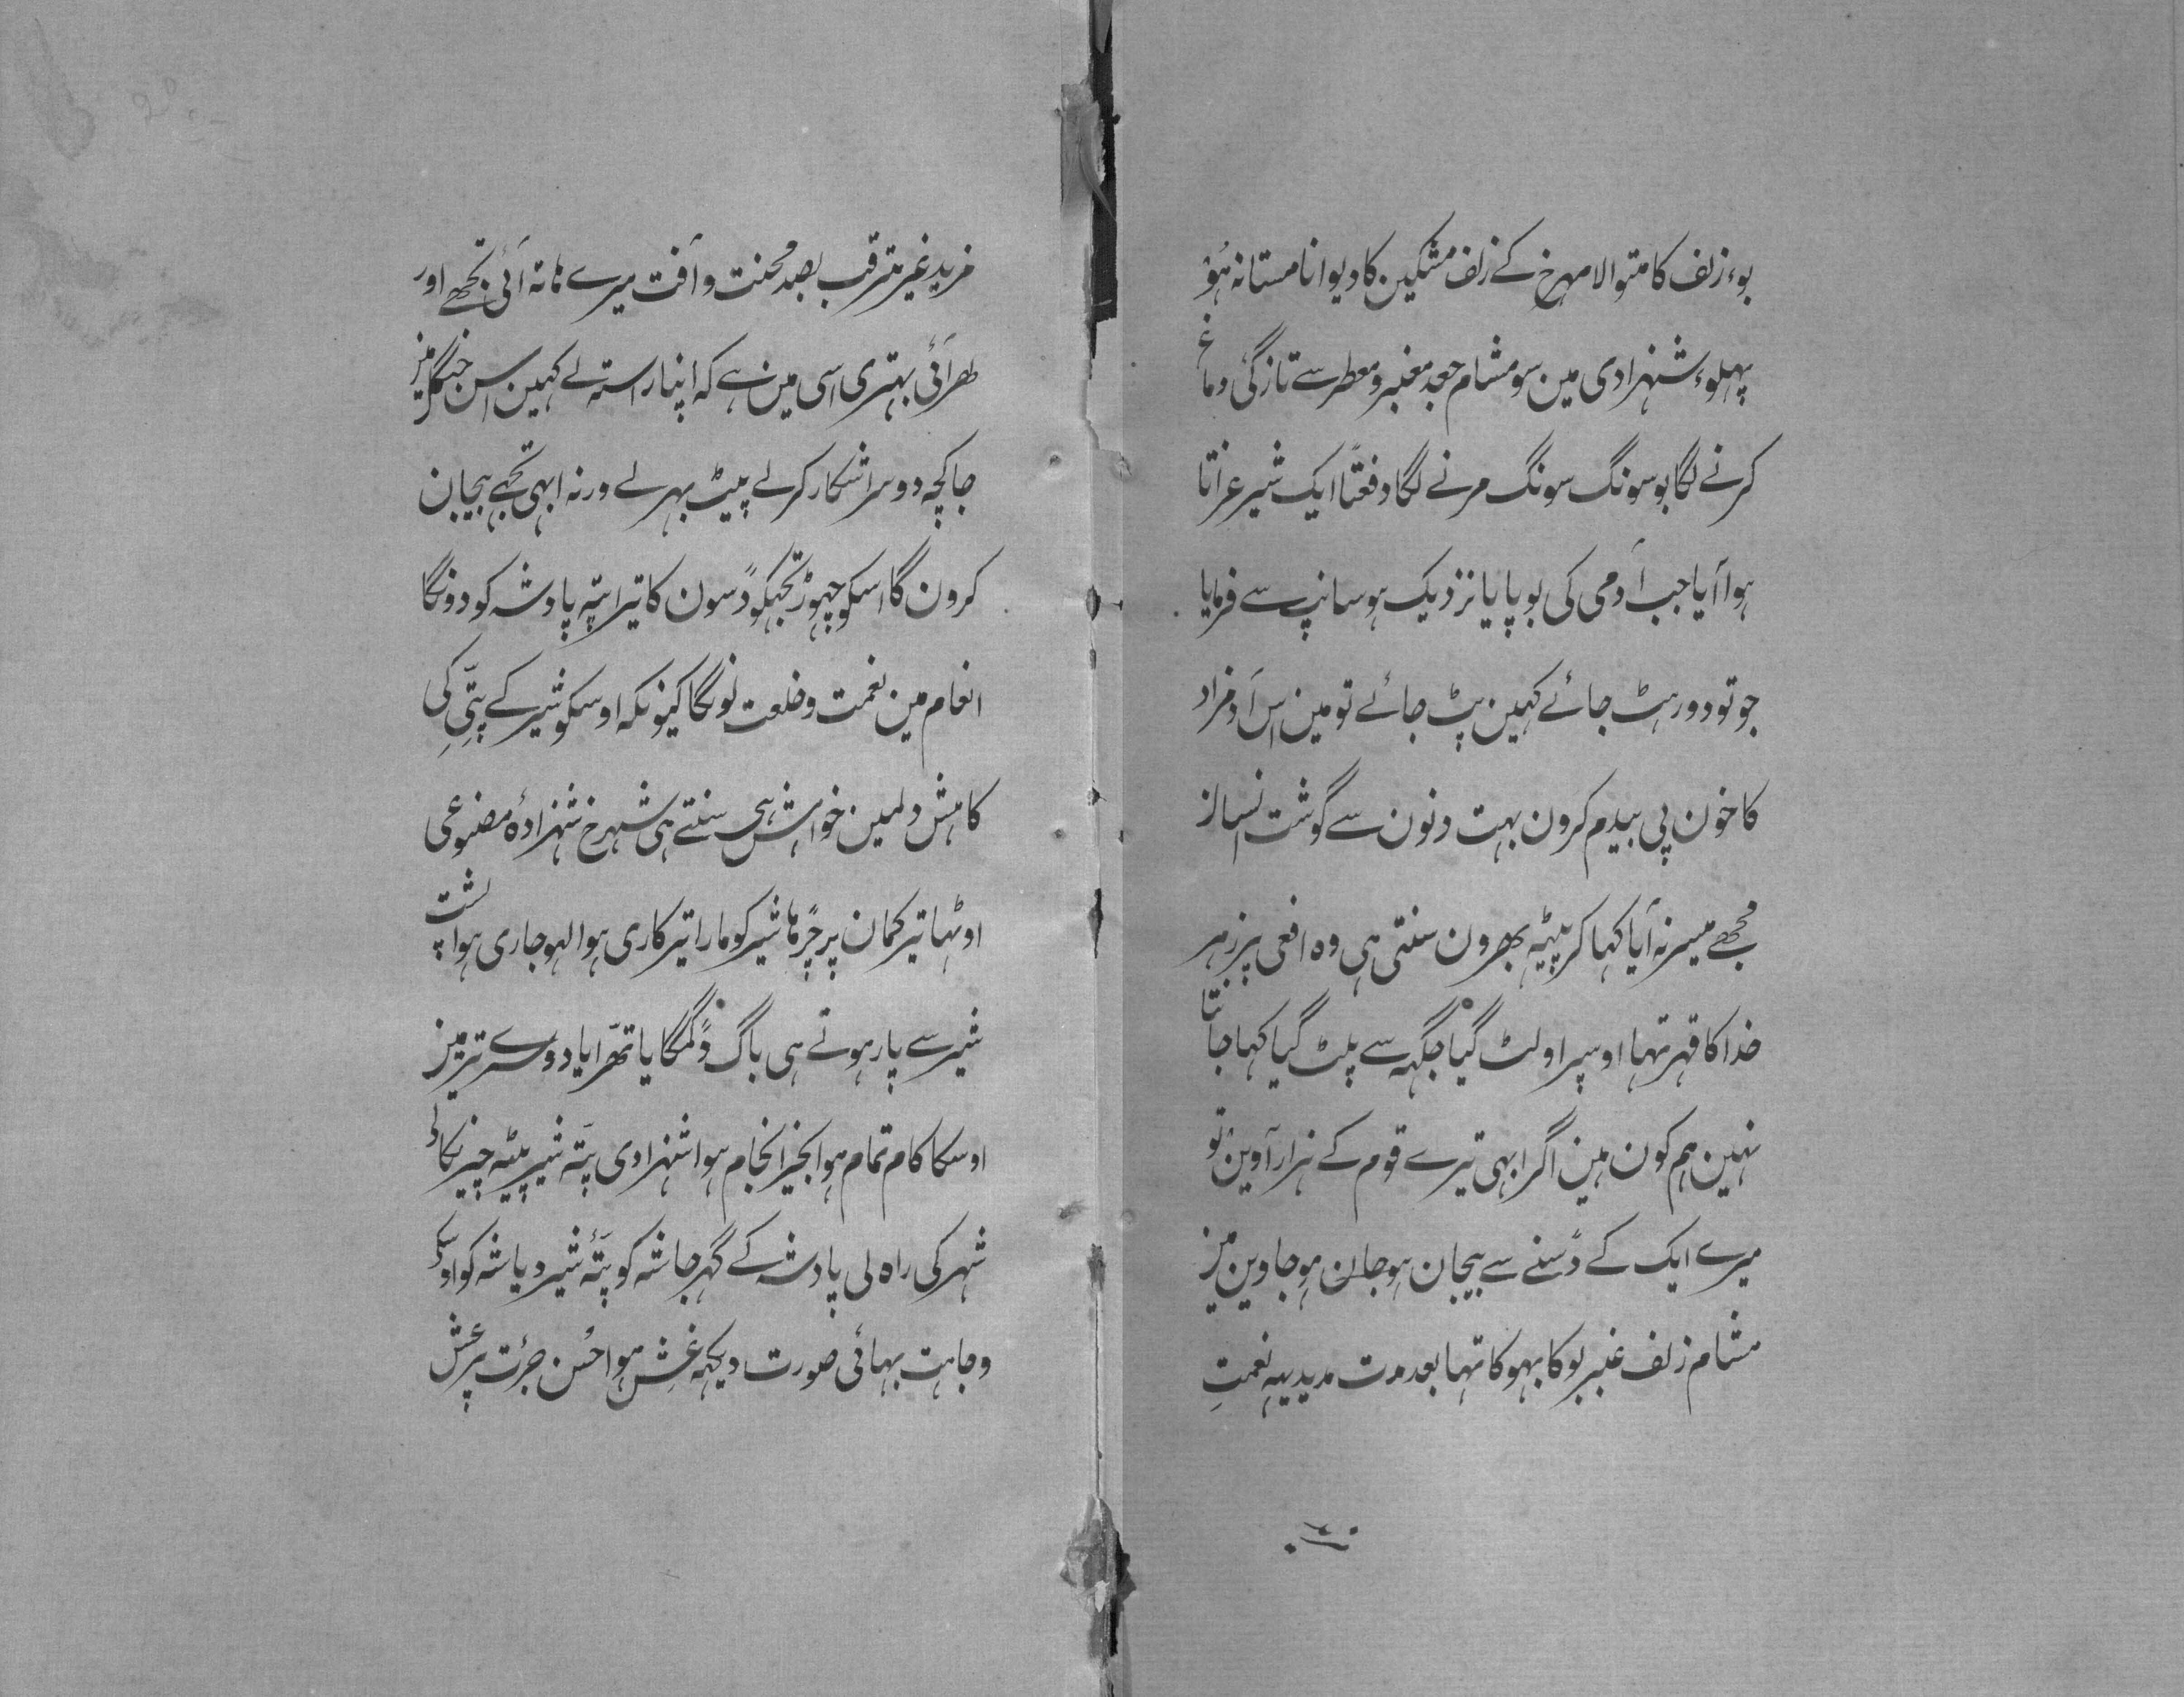 بوء زلف کا متوالا مہرخ کے زلف مشکین کا دیوانا مستانہ ہُوْ
پہلوء شہزادی مین سو مشام جعد معنبر و معطر سے تازگیٔ دماغ
کرنے لگا بو سونگ سونگ مرنے لگا دفعتًا ایک شیر غراتا
ہوا آیا جب آدمی کی بو پایا نزدیک ہو سانپ سے فرمایا
جو تو دور ہٹ جائے کہین پٹ جائے تو مین اس آدمزاد
کا خون پی بیدم کرون بہت دنون سے گوشت انسان
مجھے میسر نہ آیا کہا کر پیٹہ بھرون سنتی ہی وہ افعی پرزہر
خدا کا قہر تہا اوسپر اولٹ گیا جگہہ سے پلٹ گیا کہا جانتا
نہین ہم کون ہین اگر ابہی تیرے قوم کے ہزار آوین تو
میرے ایک کے ڈسنے سے بیجان ہو جان ہو جاوین مین
مشام زلف عنبر بو کا بہوکا تہا بعد مدت مدید یہہ نعمتِ
مزید غیر مترقب بصد محنت و آفت میرے ہاتہ آئی تجھے اور
طرآئی بہتری اسی مین ہے کہ اپنا راستہ لے کہین اس جنگل مین
جا کچہ دوسرا شکار کر لے پیٹ بہر لے ورنہ ابہی تجہے بیجان
کرون گا اسکو چہوڑ تجہکو ڈسون گا تیرا پتہ پادشہ کو دونگا
انعام مین نعمت و خلعت لونگا کیونکہ اوسکو شیر کے پتّےِ کی
کاہش دلمین خواہش ہی سنتے ہی شہرخ شہزادۂ مصنوعی
اوٹہا تیر کمان پر چڑہا شیر کو مارا تیر کاری ہوا لہو جاری ہوا پشت
شیر سے پار ہوتے ہی باگ ڈگمگایا تھرّایا دوسرے تیر مین
اوسکا کام تمام ہوا بخیر انجام ہوا شہزادی پتہ شیر پیٹہ چیر نکالی
شہر کی راہ لی پادشہ کے گہر جا شہ کو پتۂ شیر دیا شہ کو اوسکی
وجاہت بہائی صورت دیکہہ غش ہوا حُسن جرئت پر عش